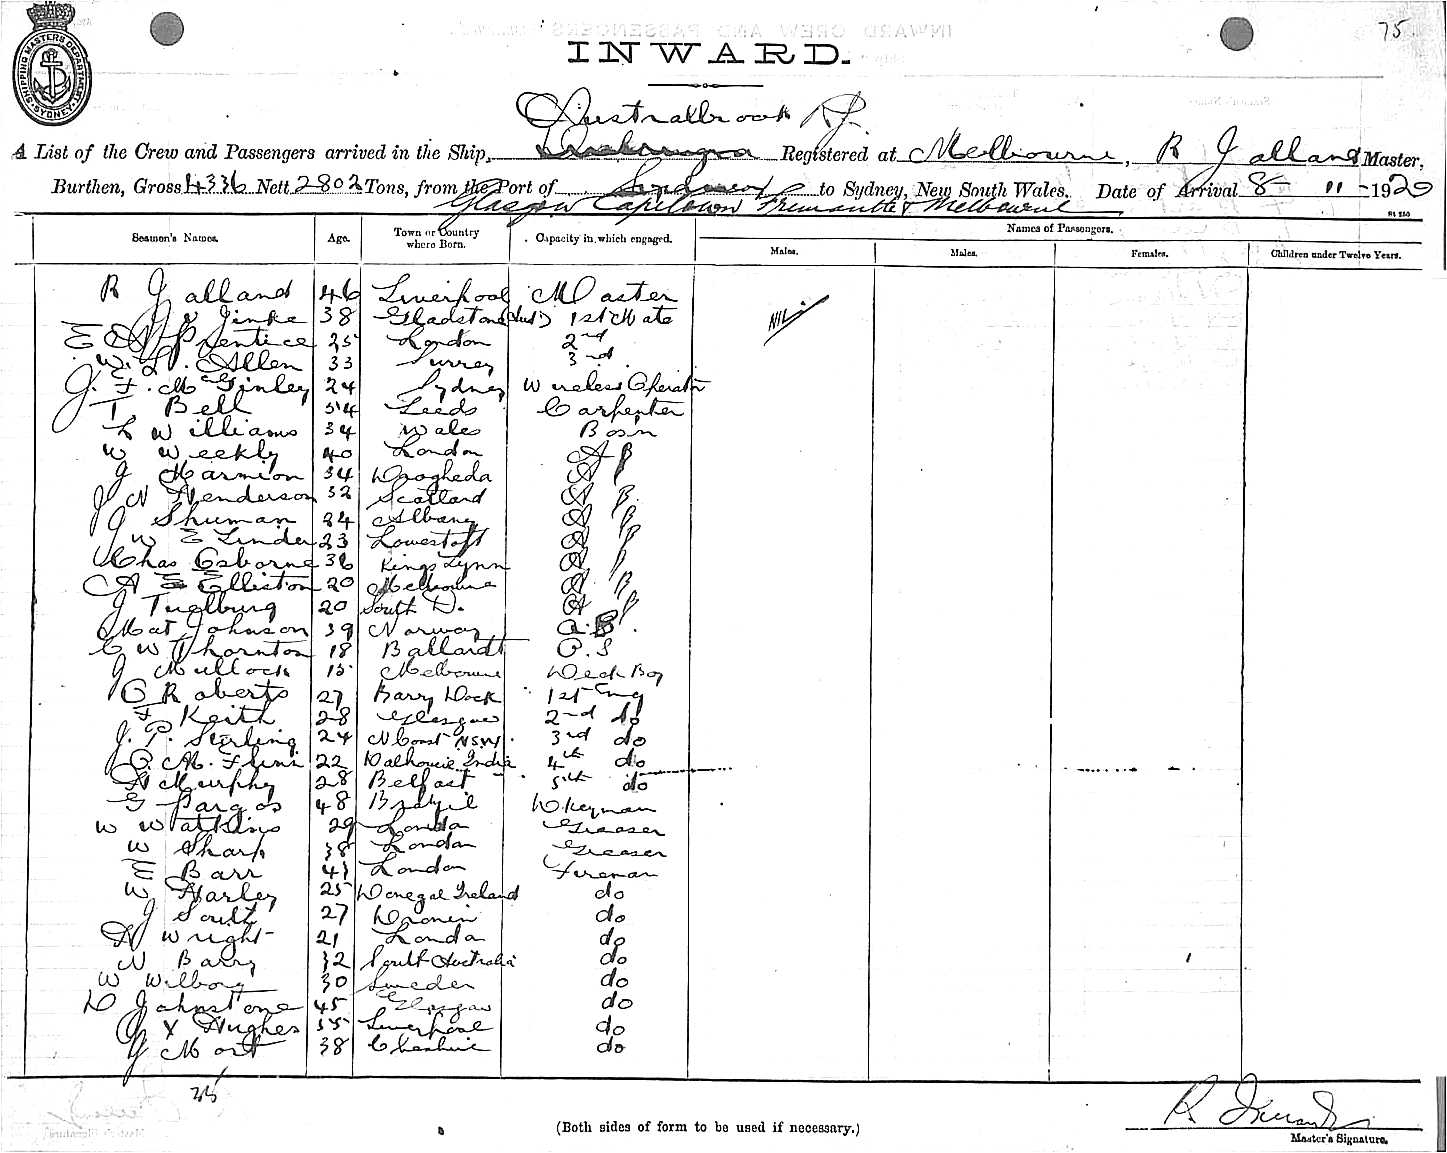 75
SHIPPING MASTERS DEPARTMENT SYDNEY
INWARD.
Australbrook RJ
A List of the Crew and Passengers arrived in the Ship, Registered at Melbourne, R Jalland Master,
Burthen, Gross 4336 Nett 2802 Tons, from the Port of to Sydney, New South Wales. Date of Arrival 8 - 11 - 1920
Glasgow Capetown Fremantle & Melbourne
Seamen's Names. Age. Town or Country where Born. Capacity in which engaged. Names of Passengers.
Males. Males. Females. Children under Twelve Years.
R Jalland 46 Liverpool Master
38 Gladstone 1st Mate Nil
E Prentice 25 London 2nd
W. Allen 33 Surrey 3rd
J. F. McGinley 24 Sydney Wireless Operator
T. Bell 54 Leeds Carpenter
L Williams 34 Wales Bosn
W Weekly 40 London A B
J Harmion 34 Drogheda A B
J N Henderson 32 Scotland A B.
J Shuman 24 Albany A B
J W E Linder 23 Lowestoft A B
Chas Osborne 36 Kings Lynn A B
A E Elliston 20 Melbourne A B
J 20 South D. A B
Mat Johnson 39 Norway A.B.
C W Thornton 18 Ballardt O.S
J Mullock 15 Melbourne Deck Boy
C Roberts 27 Barry Dock 1st Eng
F Keith 28 Glasgow 2nd do
J. P. Stirling 24 N Coast NSW. 3rd do
22 Dalhousie India 4th do
H Murphy 28 Belfast 5th do
G Pargas 48 Brazil Dkeyman
W Watkins 29 London Greaser
W Sharp 38 London Greaser
E Barr 41 London Fireman
W Harley 25 Donegal Ireland do
J 27 do
H Wright 21 London do
N Barry 32 South Australia do
W Wilborg 30 Sweden do
D Johnstone 45 Glasgow do
J X Hughes 35 Liverpool do
J Mort 38 Cheshire do
35
(Both sides of form to be used if necessary.)
Master's Signature.